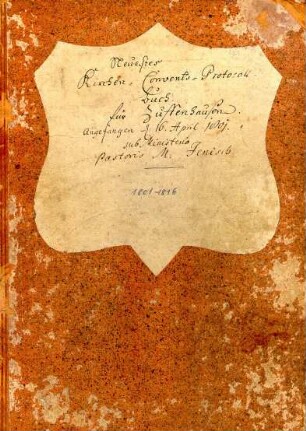 Neuestes
Kirchen-Convents-Protocoll
buch
für Zuffenhausen.
Angefangen d. 16. April 1801.
sub Ministerio
Pastoris M. Jenisch.
1801-1816